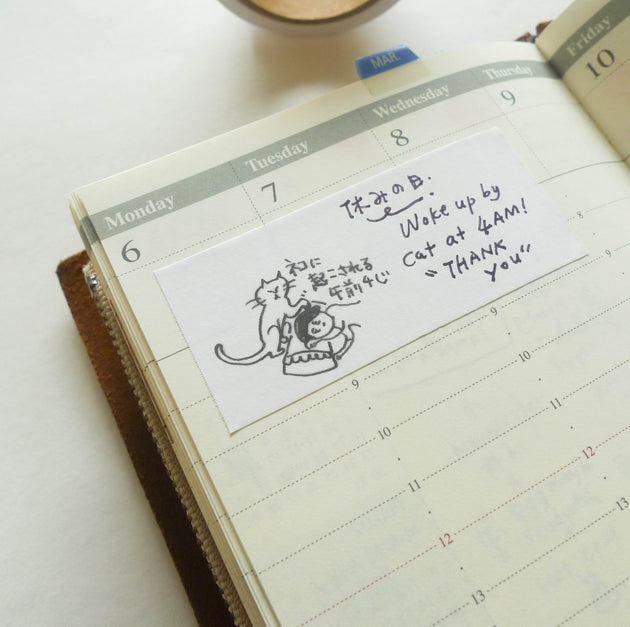 MAR.
Monday
Tuesday
Wednesday
Thursday
Friday
6
7
8
9
10
休みの日.
Woke up by
cat at 4AM!
"THANK
YOU"
ネコに
起こされる
午前4じ
8
9
9
10
10
11
11
12
12
13
13